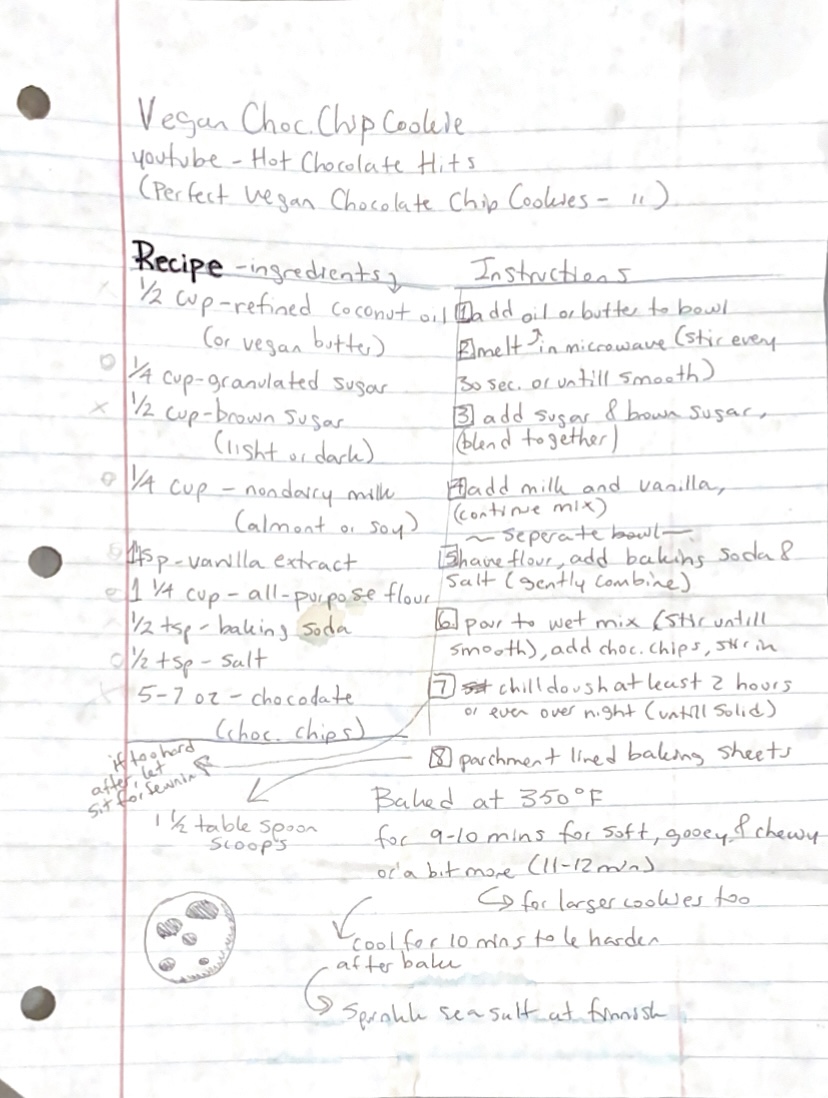 Vegan Choc. Chip Cookie
youtube - Hot Chocolate Hits
(Perfect Vegan Chocolate Chip Cookies - 11)
Recipe - ingredients
1/2 cup - refined coconut oil
(or vegan butter)
1/4 cup - granulated sugar
1/2 cup - brown sugar
(light or dark)
1/4 cup - nondairy milk
(almont or soy)
1 tsp - vanilla extract
1 1/4 cup - all-purpose flour
1/2 tsp - baking soda
1/2 tsp - salt
5-7 oz - chocodate
(choc. chips)
Instructions
1 add oil or butter to bowl
2 melt in microwave (stir every
30 sec. or untill smooth)
3 add sugar & brown sugar,
(blend together)
4 add milk and vanilla,
(continue mix)
~ seperate bowl ~
5 have flour, add baking soda &
salt (gently combine)
6 pour to wet mix (stir untill
smooth), add choc. chips, stir in
7 chill doush at least 2 hours
or even over night (untill solid)
8 parchment lined baking sheets
if too hard
after, let
sit for
1 1/2 table spoon
scoops
Baked at 350°F
for 9-10 mins for soft, gooey, & chewy
or a bit more (11-12 min)
for larger cookies too
cool for 10 mins to be harden
after bake
sprinkle sea salt at finnish